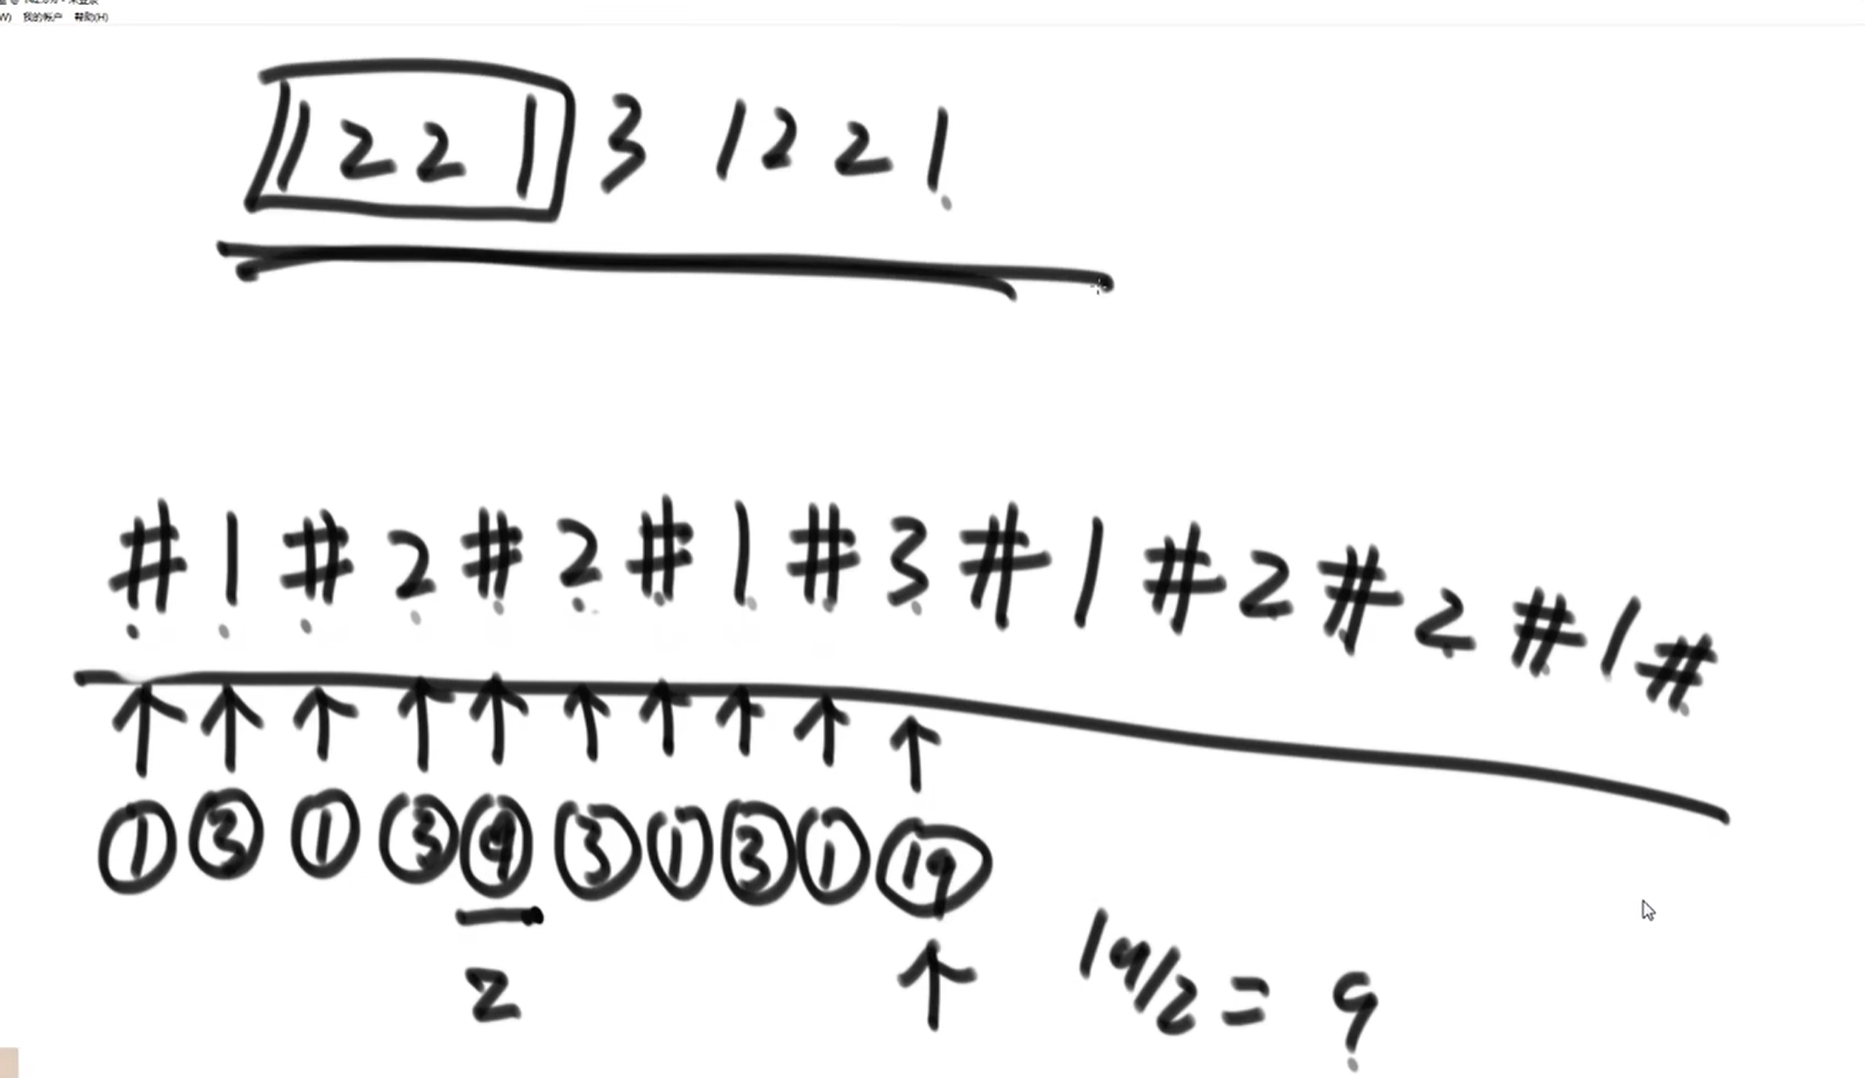 我的帐户 帮助(H)
1 2 2 1 3 1 2 2 1
# 1 # 2 # 2 # 1 # 3 # 1 # 2 # 2 # 1 #
1 3 1 3 9 3 1 3 1 19
2
19/2 = 9